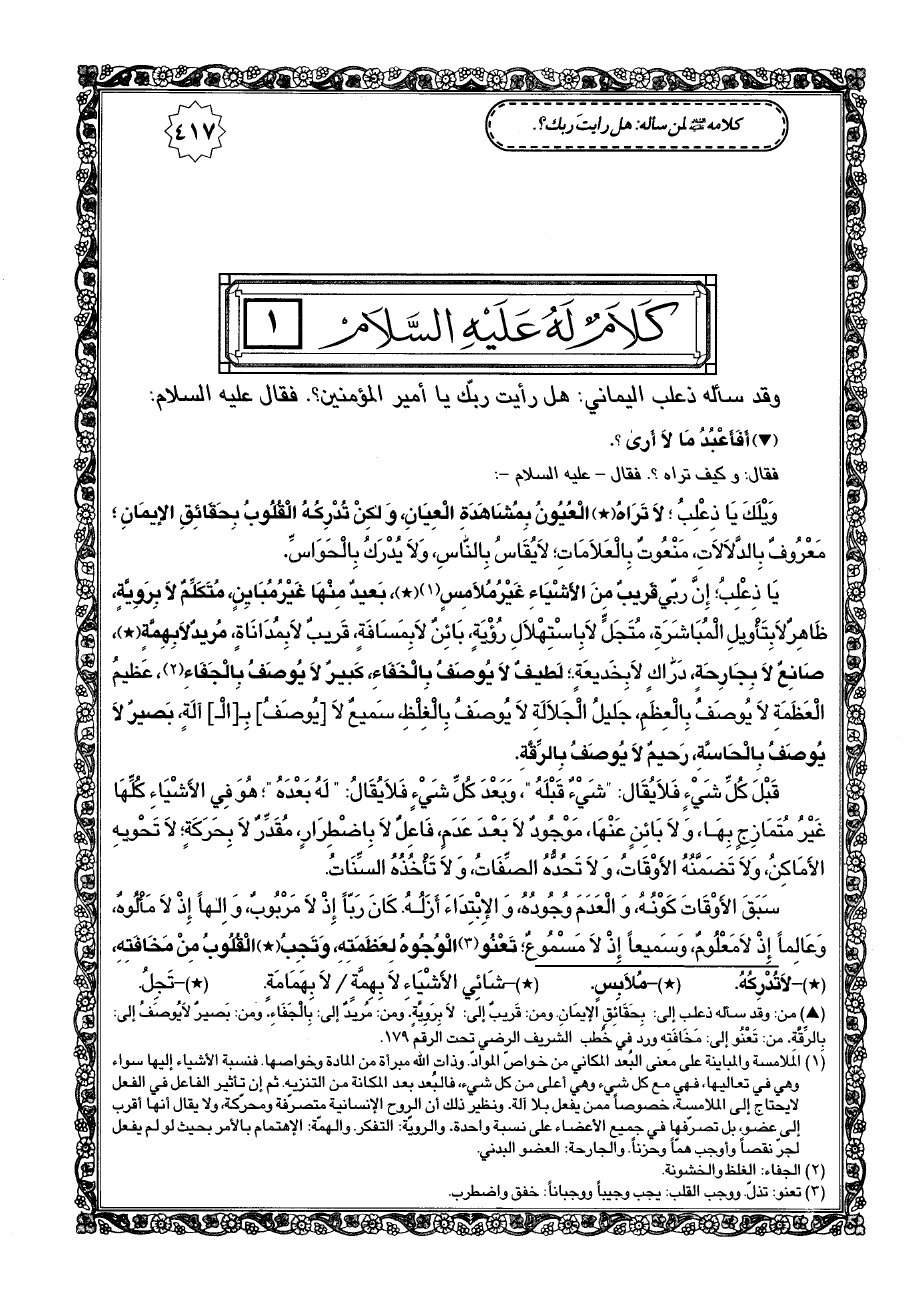 كلامه عليه السلام لمن سأله: هل رأيتَ ربك؟.
٤١٧
كَلَامٌ لَهُ عَلَيْهِ السَّلَامُ
١
وقد سأله ذعلب اليماني: هل رأيت ربّك يا أمير المؤمنين؟. فقال عليه السلام:
(▼) أَفَأَعْبُدُ مَا لاَ أَرىٰ ؟.
فقال: و كيف تراه ؟. فقال – عليه السلام –:
وَيْلَكَ يَا ذِعْلِبُ ؛ لاَ تَرَاهُ(★) الْعُيُونُ بِمُشَاهَدَةِ الْعِيَانِ، وَ لكِنْ تُدْرِكُهُ الْقُلُوبُ بِحَقَائِقِ الإيمَانِ ؛
مَعْرُوفٌ بِالدَّلَالَاتِ، مَنْعُوتٌ بِالْعَلَامَاتِ؛ لاَيُقَاسُ بِالنَّاسِ، وَلاَ يُدْرَكُ بِالْحَوَاسِّ.
يَا ذِعْلِبُ؛ إِنَّ رَبِّي قَرِيبٌ مِنَ الأَشْيَاءِ غَيْرُ مُلاَمِسٍ(١)(★)، بَعيدٌ مِنْهَا غَيْرُ مُبَايِنٍ، مُتَكَلِّمٌ لاَ بِرَوِيَّةٍ،
ظَاهِرٌ لاَبِتَأْوِيلِ الْمُبَاشَرَةِ، مُتَجَلٍّ لاَبِاسْتِهْلاَلِ رُؤْيَةٍ، بَائِنٌ لاَبِمَسَافَةٍ، قَريبٌ لاَبِمُدَانَاةٍ، مُريدٌ لاَبِهِمَّةٍ(★)،
صَانِعٌ لاَ بِجَارِحَةٍ، دَرَّاكٌ لاَبِخَديعَةٍ.؛ لَطيفٌ لاَ يُوصَفُ بِالْخَفَاءِ، كَبيرٌ لاَ يُوصَفُ بِالْجَفَاءِ(٢)، عَظيمُ
الْعَظَمَةِ لاَ يُوصَفُ بِالْعِظَمِ، جَليلُ الْجَلاَلَةِ لاَ يُوصَفُ بِالْغِلَظِ، سَميعٌ لاَ [يُوصَفُ] بِـ[الْـ] آلَةِ، بَصيرٌ لاَ
يُوصَفُ بِالْحَاسَّةِ، رَحيمٌ لاَ يُوصَفُ بِالرِّقَّةِ.
قَبْلَ كُلِّ شَيْءٍ فَلاَيُقَالُ: "شَيْءٌ قَبْلَهُ "، وَبَعْدَ كُلِّ شَيْءٍ فَلاَيُقَالُ: " لَهُ بَعْدَهُ "؛ هُوَ فِي الأَشْيَاءِ كُلِّهَا
غَيْرُ مُتَمَازِجٍ بِهَـا، وَ لاَ بَائِنٍ عَنْهَا، مَوْجُودٌ لاَ بَعْدَ عَدَمٍ، فَاعِلٌ لاَ بِاضْطِرَارٍ، مُقَدِّرٌ لاَ بِحَرَكَةٍ؛ لاَ تَحْويهِ
الأَمَاكِنُ، وَلاَ تَضَمَّنُهُ الأَوْقَاتُ، وَ لاَ تَحُدُّهُ الصِّفَاتُ، وَ لاَ تَأْخُذُهُ السِّنَاتُ.
سَبَقَ الأَوْقَاتَ كَوْنُهُ، وَ الْعَدَمَ وُجُودُهُ، وَ الإِبْتِدَاءَ أَزَلُهُ. كَانَ رَبّاً إِذْ لاَ مَرْبُوبٌ، وَ إِلهاً إِذْ لاَ مَأْلُوهٌ،
وَعَالِماً إِذْ لاَمَعْلُومٌ، وَسَميعاً إِذْ لاَ مَسْمُوعٌ؛ تَعْنُو(٣)الْوُجُوهُ لِعَظَمَتِهِ، وَتَجِبُ(★) الْقُلُوبُ مِنْ مَخَافَتِهِ،
(★)–لاَتُدْرِكُهُ. (★)–مُلاَبِسٍ. (★)–شَائِي الأَشْيَاءِ لاَ بِهِمَّةٍ / لاَ بِهَمَامَةٍ. (★)–تَجِلُ.
(▲) من: وقد سأله ذعلب إلى: بِحَقَائِقِ الإيمَانِ. ومن: قَريبٌ إلى: لاَ بِرَوِيَّةٍ. ومن: مُريدٌ إلى: بِالْجَفَاءِ. ومن: بَصيرٌ لاَيُوصَفُ إلى:
بِالرِّقَّةِ. من: تَعْنُو إلى: مَخَافَتِهِ ورد في خُطب الشريف الرضي تحت الرقم ١٧٩.
(١) الملامسة والمباينة على معنى البُعد المكاني من خواصّ الموادّ. وذات الله مبرأة من المادة وخواصها. فنسبة الأشياء إليها سواء
وهي في تعاليها، فهي مع كل شيء وهي أعلى من كل شيء، فالبُعد بعد المكانة من التنزيه. ثم إن تأثير الفاعل في الفعل
لايحتاج إلى الملامسة، خصوصاً ممن يفعل بلا آلة. ونظير ذلك أن الروح الإنسانية متصرّفة ومحركة، ولا يقال أنها أقرب
إلى عضو، بل تصرّفها في جميع الأعضاء على نسبة واحدة. والرويّة: التفكر. والهمّة: الإهتمام بالأمر بحيث لو لم يفعل
لجرّ نقصاً وأوجب همّاً وحزناً. والجارحة: العضو البدني.
(٢) الجفاء: الغلظ والخشونة.
(٣) تعنو: تذلّ. ووجب القلب: يجب وجيباً ووجباناً: خفق واضطرب.